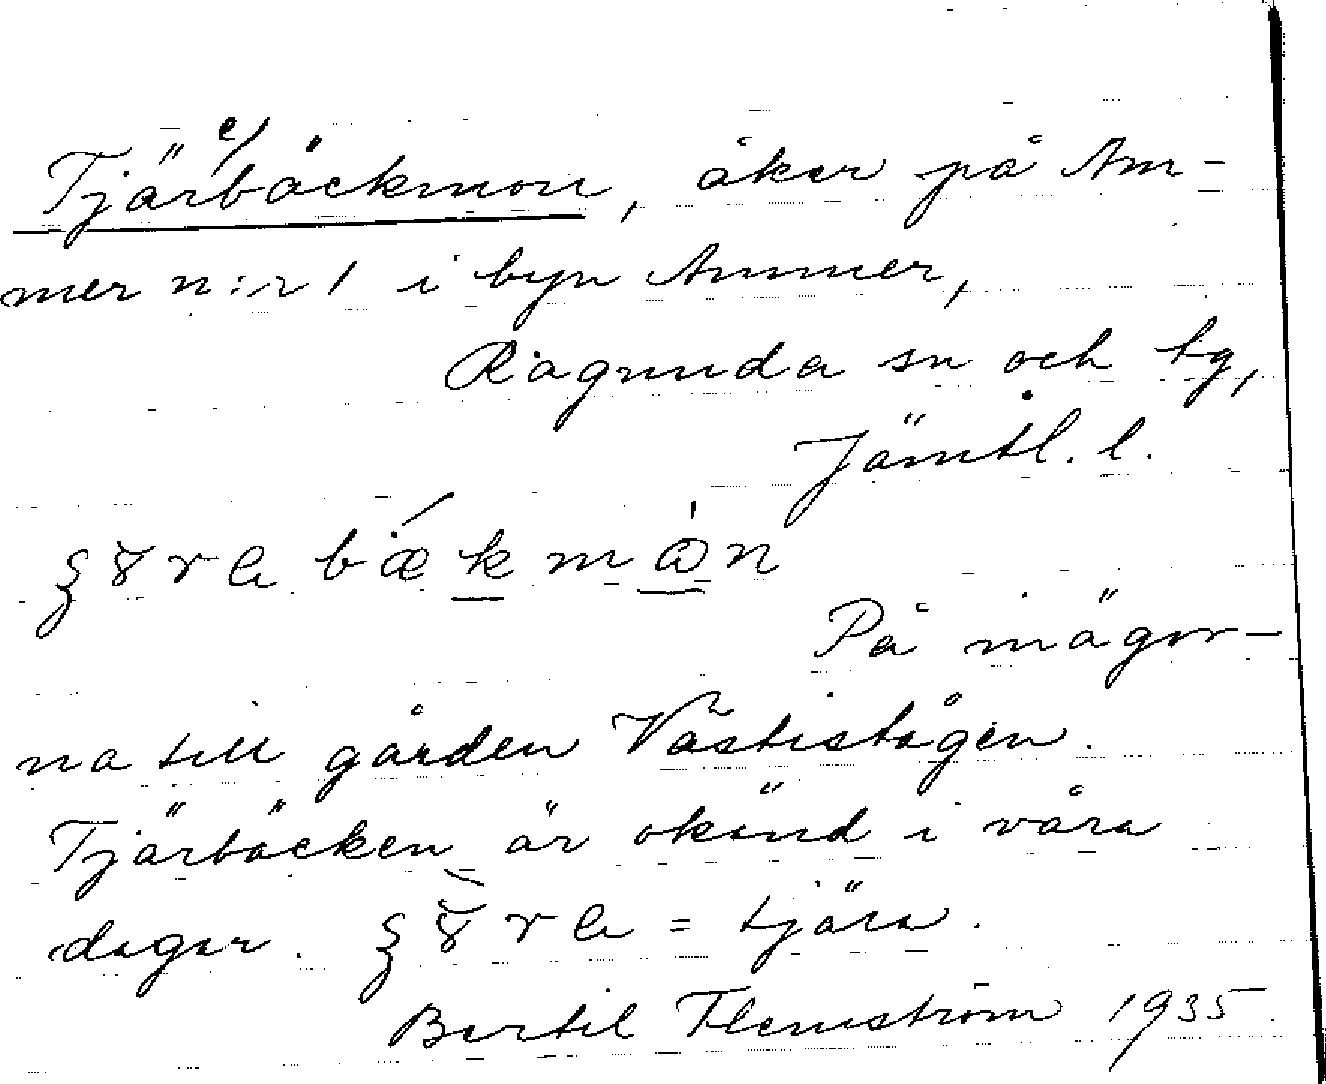 Tjärebäckmon, åker på Am-
mer n:r 1 i byn Ammer,
Ragunda sn och tg,
Jämtl. l.
bækmån
På mägor-
na till gården Västistågen.
Tjärbäcken är okänd i våra
dagar. = tjära.
Bertil Flemström 1935.